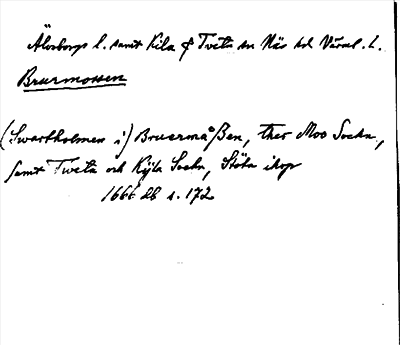 Älvsborgs l. samt Kila & Tveta sn Näs hd Värml. l.
Brurmossen
(Swartholmen i) Bruermåßen, ther Moo Sochn,
samt Tweta och Kijla Sochn, Stöta ihop
1666 db s. 172